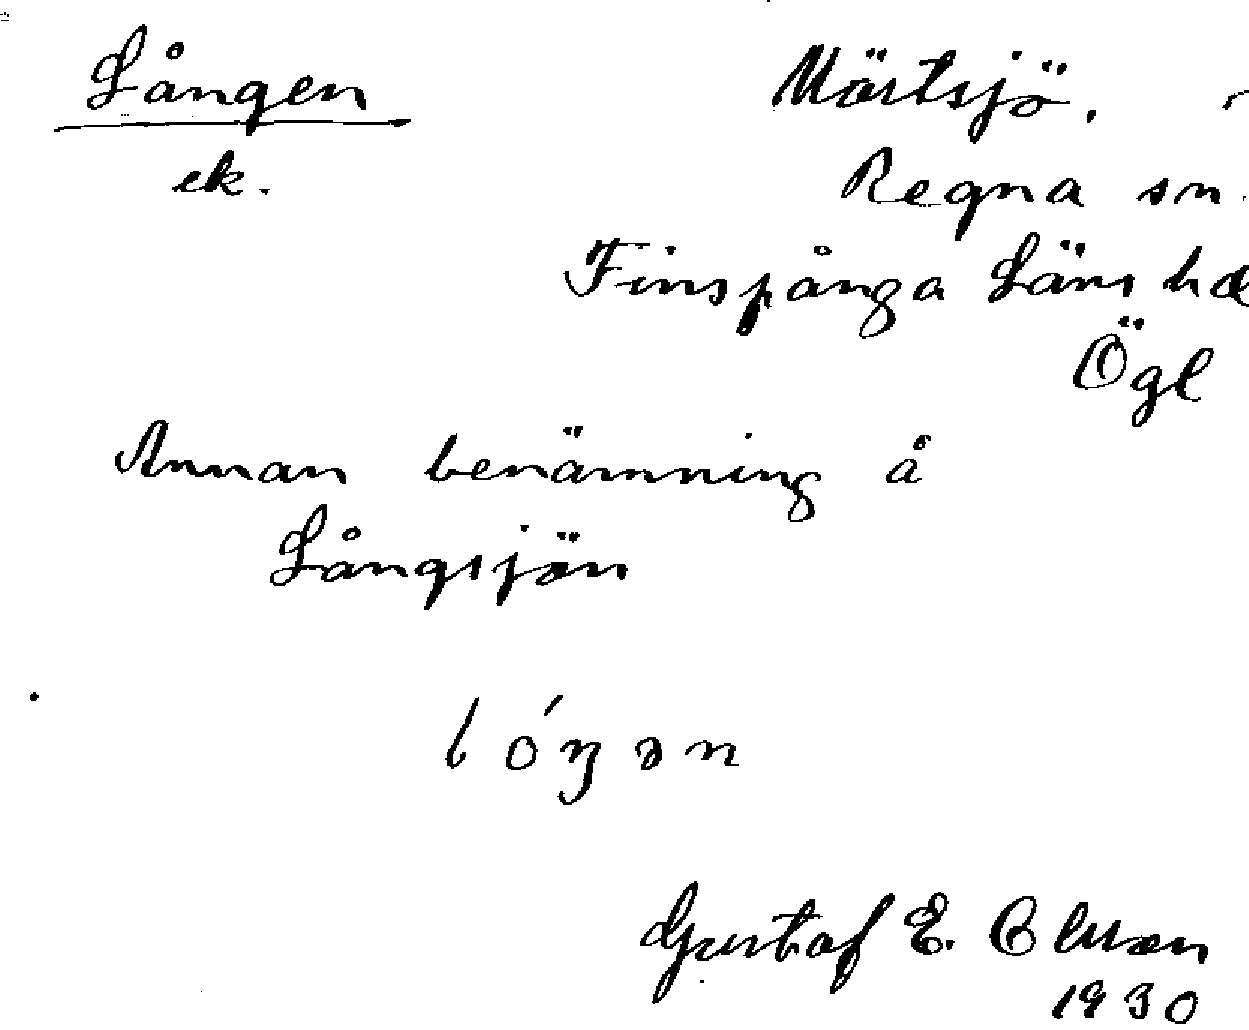 Lången
ek.
Mörtsjö.
Regna sn.
Finspånga Läns hd
Ögl
Annan benämning å
Långsjön
lóŋən
Gustaf E.
1930